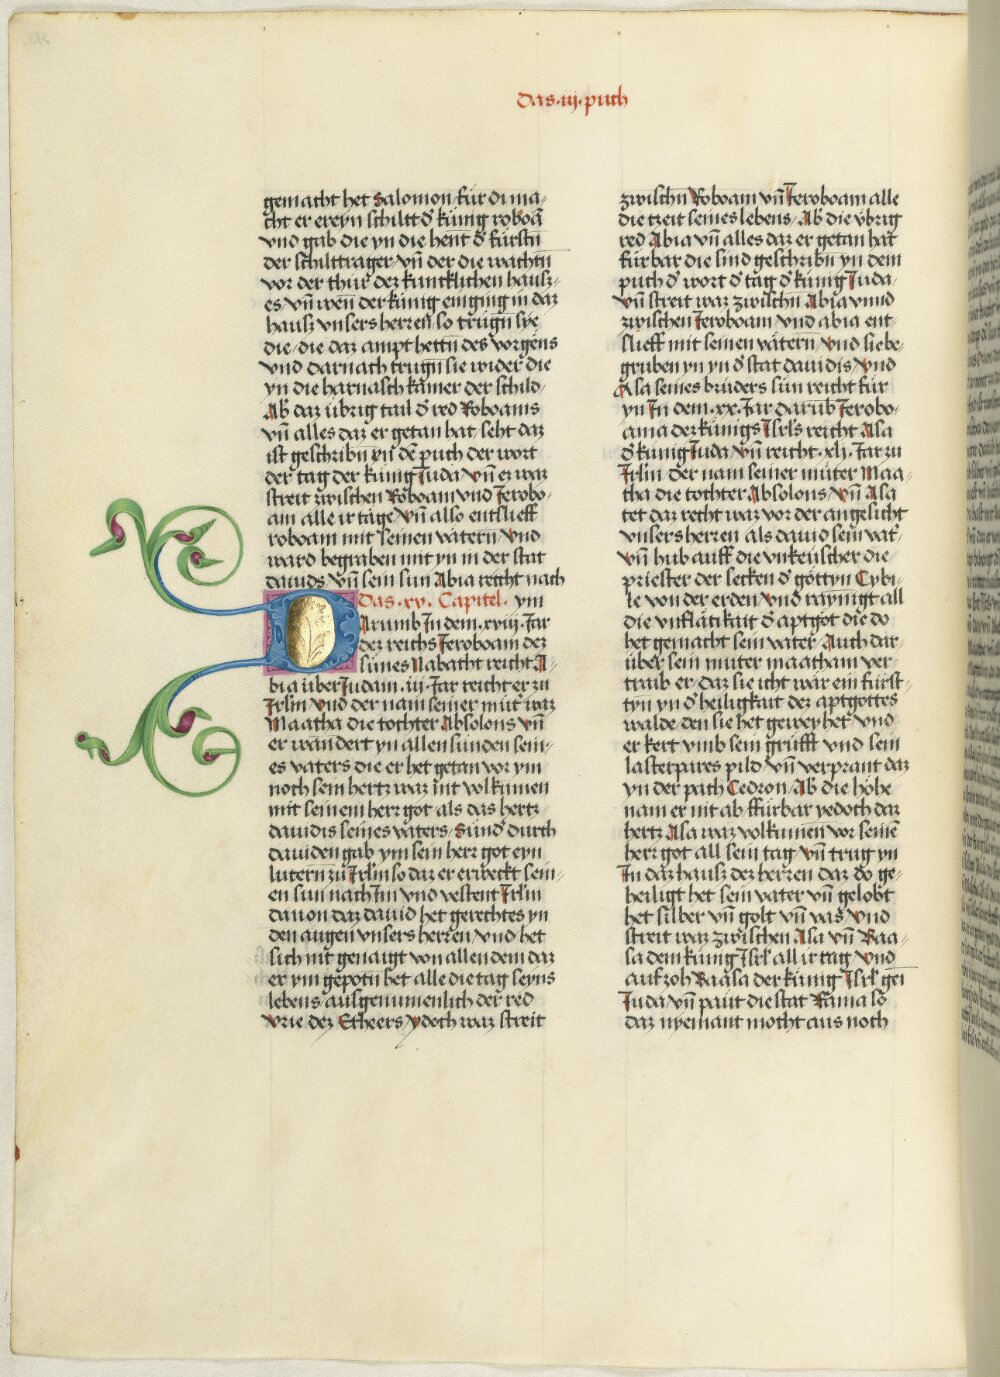 Das·iij·puch
gemacht het Salomon für di ma-
cht er ereyn schiltt d' künig roboā
vnd gab die yn die hent d' fürstn̄
der schilttrager/ vn̄ der die wachtn̄
vor der thür dez küncklichen hausz-
es vn̄ wen̄ der künig einging in daz
hausz vnsers herren/ so trugn̄ sye
die/ die daz ampt hettn̄ des vorgens
vnd darnach trugn̄ sie wider die
yn die harnasch kamer der schild/
Ab' daz übrig tail d' red Roboams
vn̄ alles daz er getan hat/ seht daz
ist geschribn̄ yn dē puch der wort
der tag der künig Juda/ vn̄ ez waz
streit zwischen Roboam vnd Jerobo-
am alle ir tage/ Vn̄ also entslieff
roboam mit seinen vatern/ vnd
ward begraben mit yn in der stat
dauids vn̄ sein sun Abia reicht nach
Das·xv· Capitel· ym
Darumb In dem·xviij·Jar
dez reichs Jeroboam dez
sunes Nabatht reicht A-
bia über Judam·iij·Jar reicht er zu
Jrlm̄ vnd der nam seiner mut' waz
Maatha die tochter Absolons vn̄
er wandert yn allen sunden sein-
es vaters die er het getan vor ym
noch sein hertz waz nit volkumen
mit seinem herr got als das hertz
dauidis seines vaters/ Sund' durch
dauiden gab ym sein herr got eyn
lutern zu Jrlm̄ so daz er erweckt sein-
en sun nach Jm vnd vestent Jrlm̄
dauon daz dauid het gerechtes yn
den augen vnsers herren/ vnd het
sich nit genaigt von allen dem daz
er ym gepotn̄ het alle die tag seyns
lebens ausgenumenlich der red
vrie dez Etheers/ ydoch waz streit
zwischn̄ Roboam vn̄ Jeroboam alle
die tzeit seines lebens/ Ab' die vbrig
red Abia vn̄ alles daz er getan hat
fürbar die sind geschribn̄ yn dem
puch d' wort d' tag d' künig Juda/
vn̄ streit waz zwischn̄ Abia vnnd
zwischen Jeroboam vnd abia ent-
slieff mit seinen vatern̄ vnd sie be-
gruben yn yn d' stat dauidis/ vnd
Asa seines bruders sun reicht für
yn Jn dem·xx·Jar darūb Jerobo-
ama der künigs Jsrl's reicht Asa
d' künig Juda/ vn̄ reicht·xli·Jar zu
Jrlm̄ der nam seiner muter Maa-
tha die tochter Absolons/ vn̄ Asa
tet daz recht waz vor der angesicht
vnsers herren als dauid sein vat'/
vn̄ hub auff die vnkeuscher die
priester der secken d' göttyn Cybi-
le von der erden/ vnd raynigt all
die vnflatikait d' aptgot die do
het gemacht sein vater/ Auch dar-
über sein muter maatham ver-
traib er/ daz sie icht wär ein fürst-
tyn yn d' heiligkait dez aptgottes
walde den sie het geweyhet vnd
er kert vmb sein grufft vnd sein
lasterpares pild/ vn̄ verprant daz
yn der pach Cedron/ Ab' die höhe
nam er nit ab fürbar yedoch daz
hertz Asa waz volkumen vor seinē
herr got all sein tag/ vn̄ trug yn
Jn daz hausz dez herren daz do ge-
heiligt het sein vater vn̄ gelobt
het silber vn̄ golt vn̄ vas/ vnd
streit waz zwischen Asa vn̄ Baa-
sa dem künig Jsrl' all ir tag/ vnd
aufzoh Baasa der künig Jsrl' gein
Juda vn̄ paut die stat Rama so
daz nyemant mocht aus noch